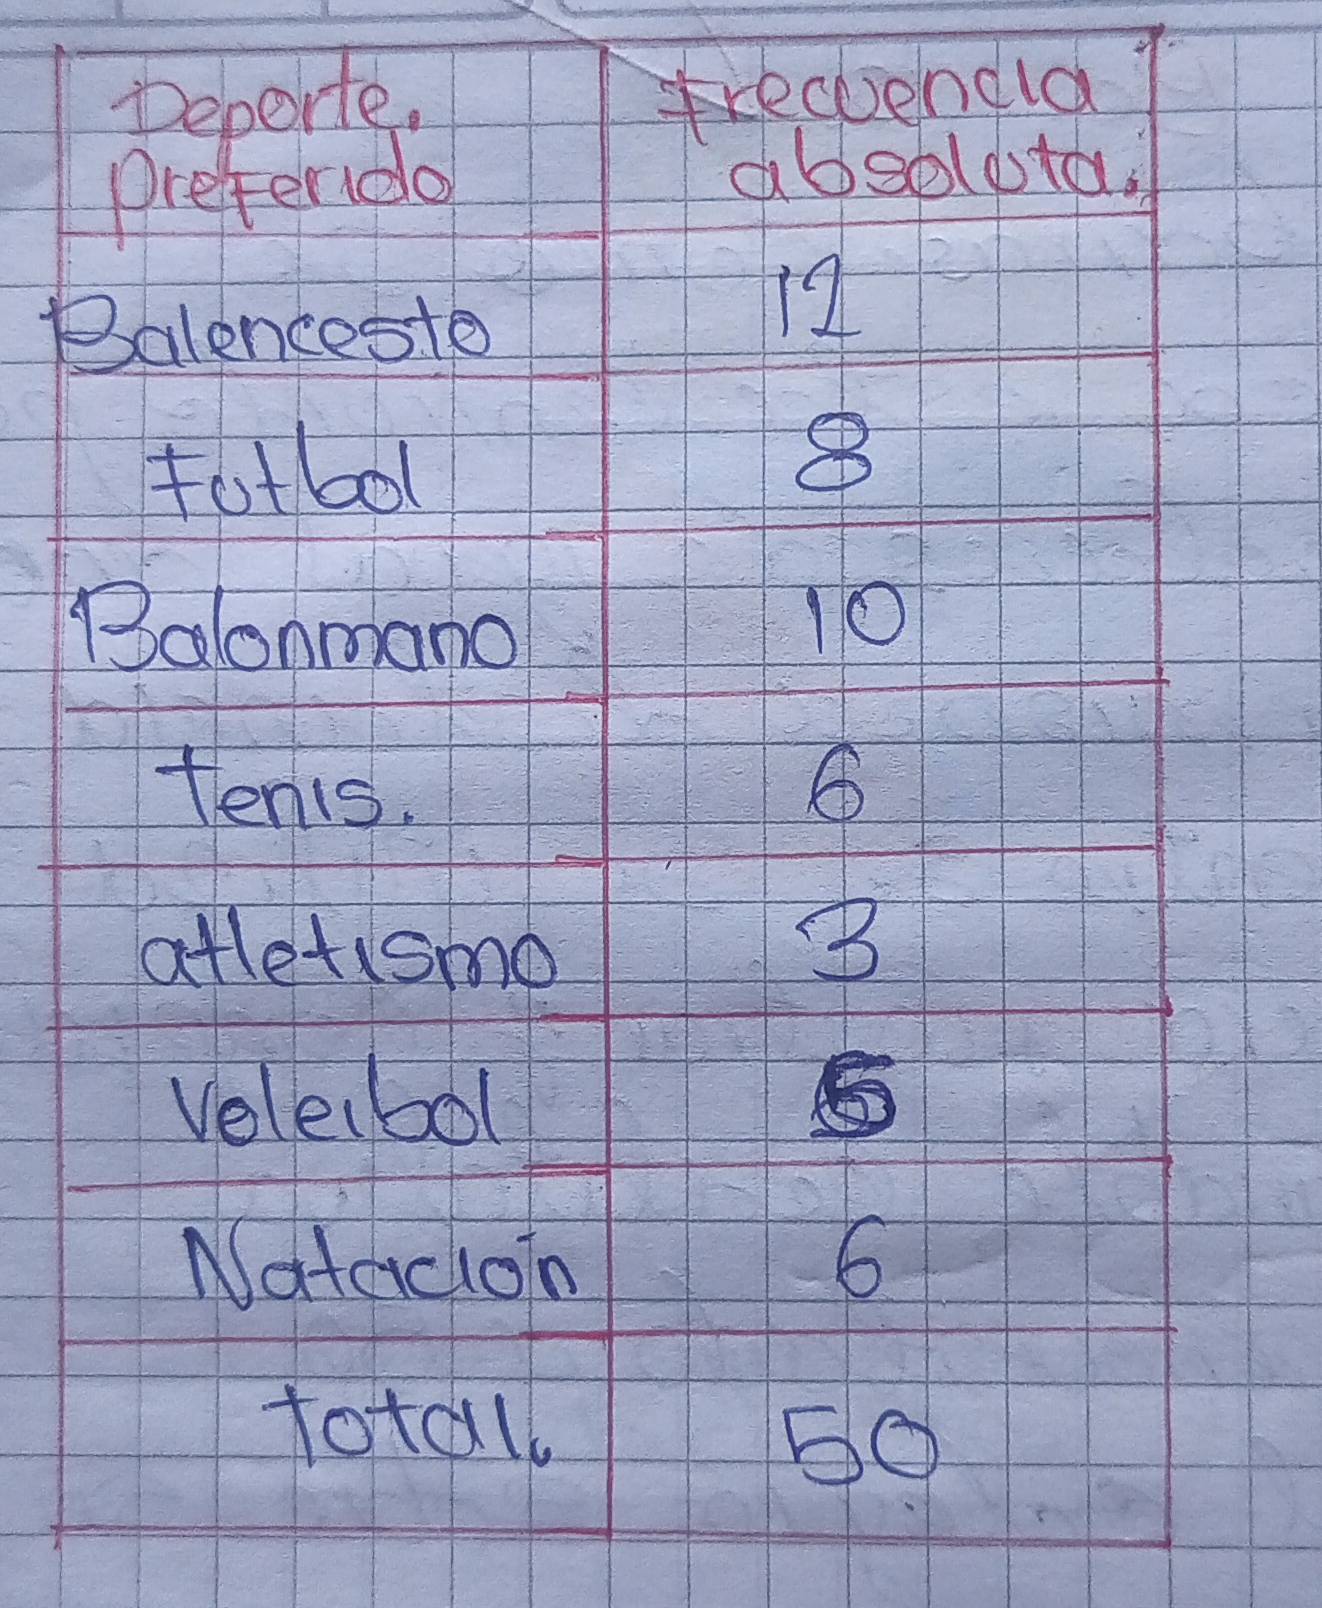 Deporte. frecuencia
preferido absoluta.
Balencesto 12
Futbol 8
Balonmano 10
Tenis. 6
atletismo 3
Voleibol 5
Natación 6
total. 50